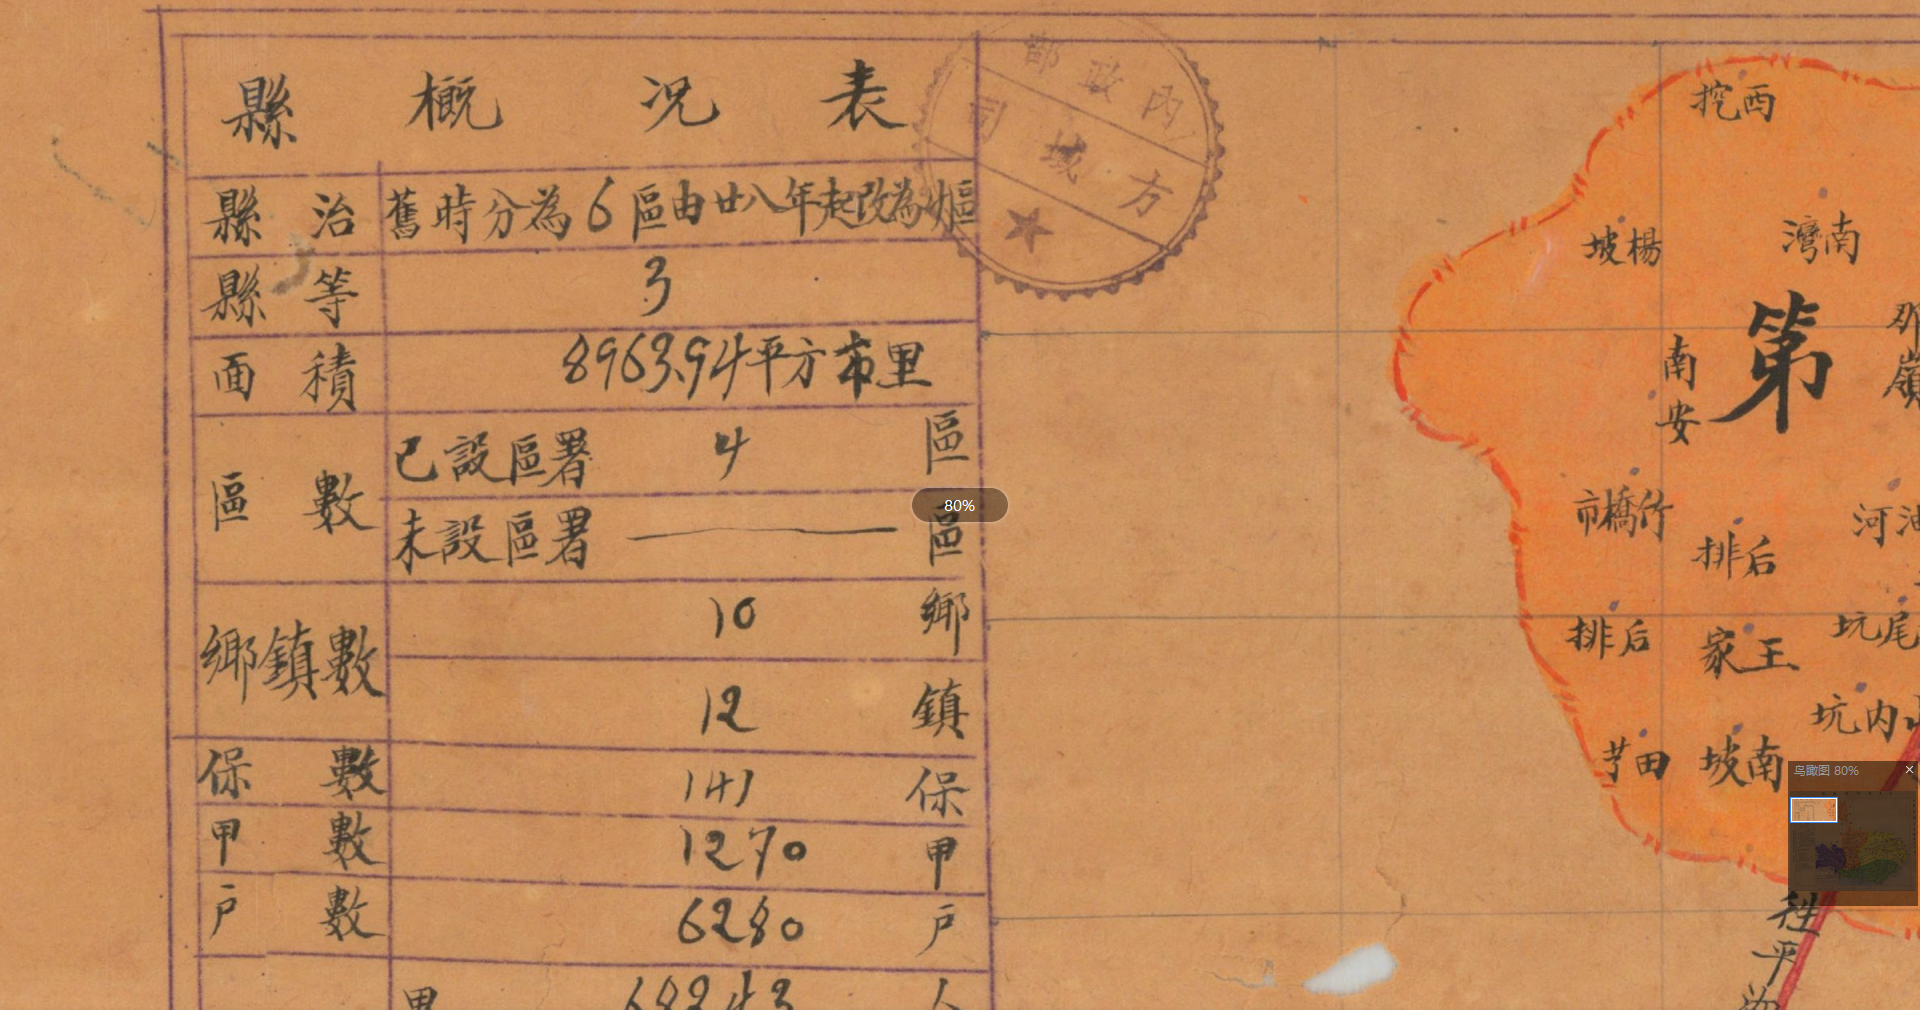 縣概況表
縣治 舊時分為6區由廿八年起改為4區
縣等 3
面積 8963.94平方市里
區數 已設區署 4 區
未設區署 —— 區
鄉鎮數 10 鄉
12 鎮
保數 141 保
甲數 1270 甲
戶數 6280 戶
男 人
內政部
方域司
挖西
坡楊
灣南
第
南安
市橋竹
排后
河
排后
家王
坑尾
坑内
田
坡南
平
80%
鸟瞰图 80%